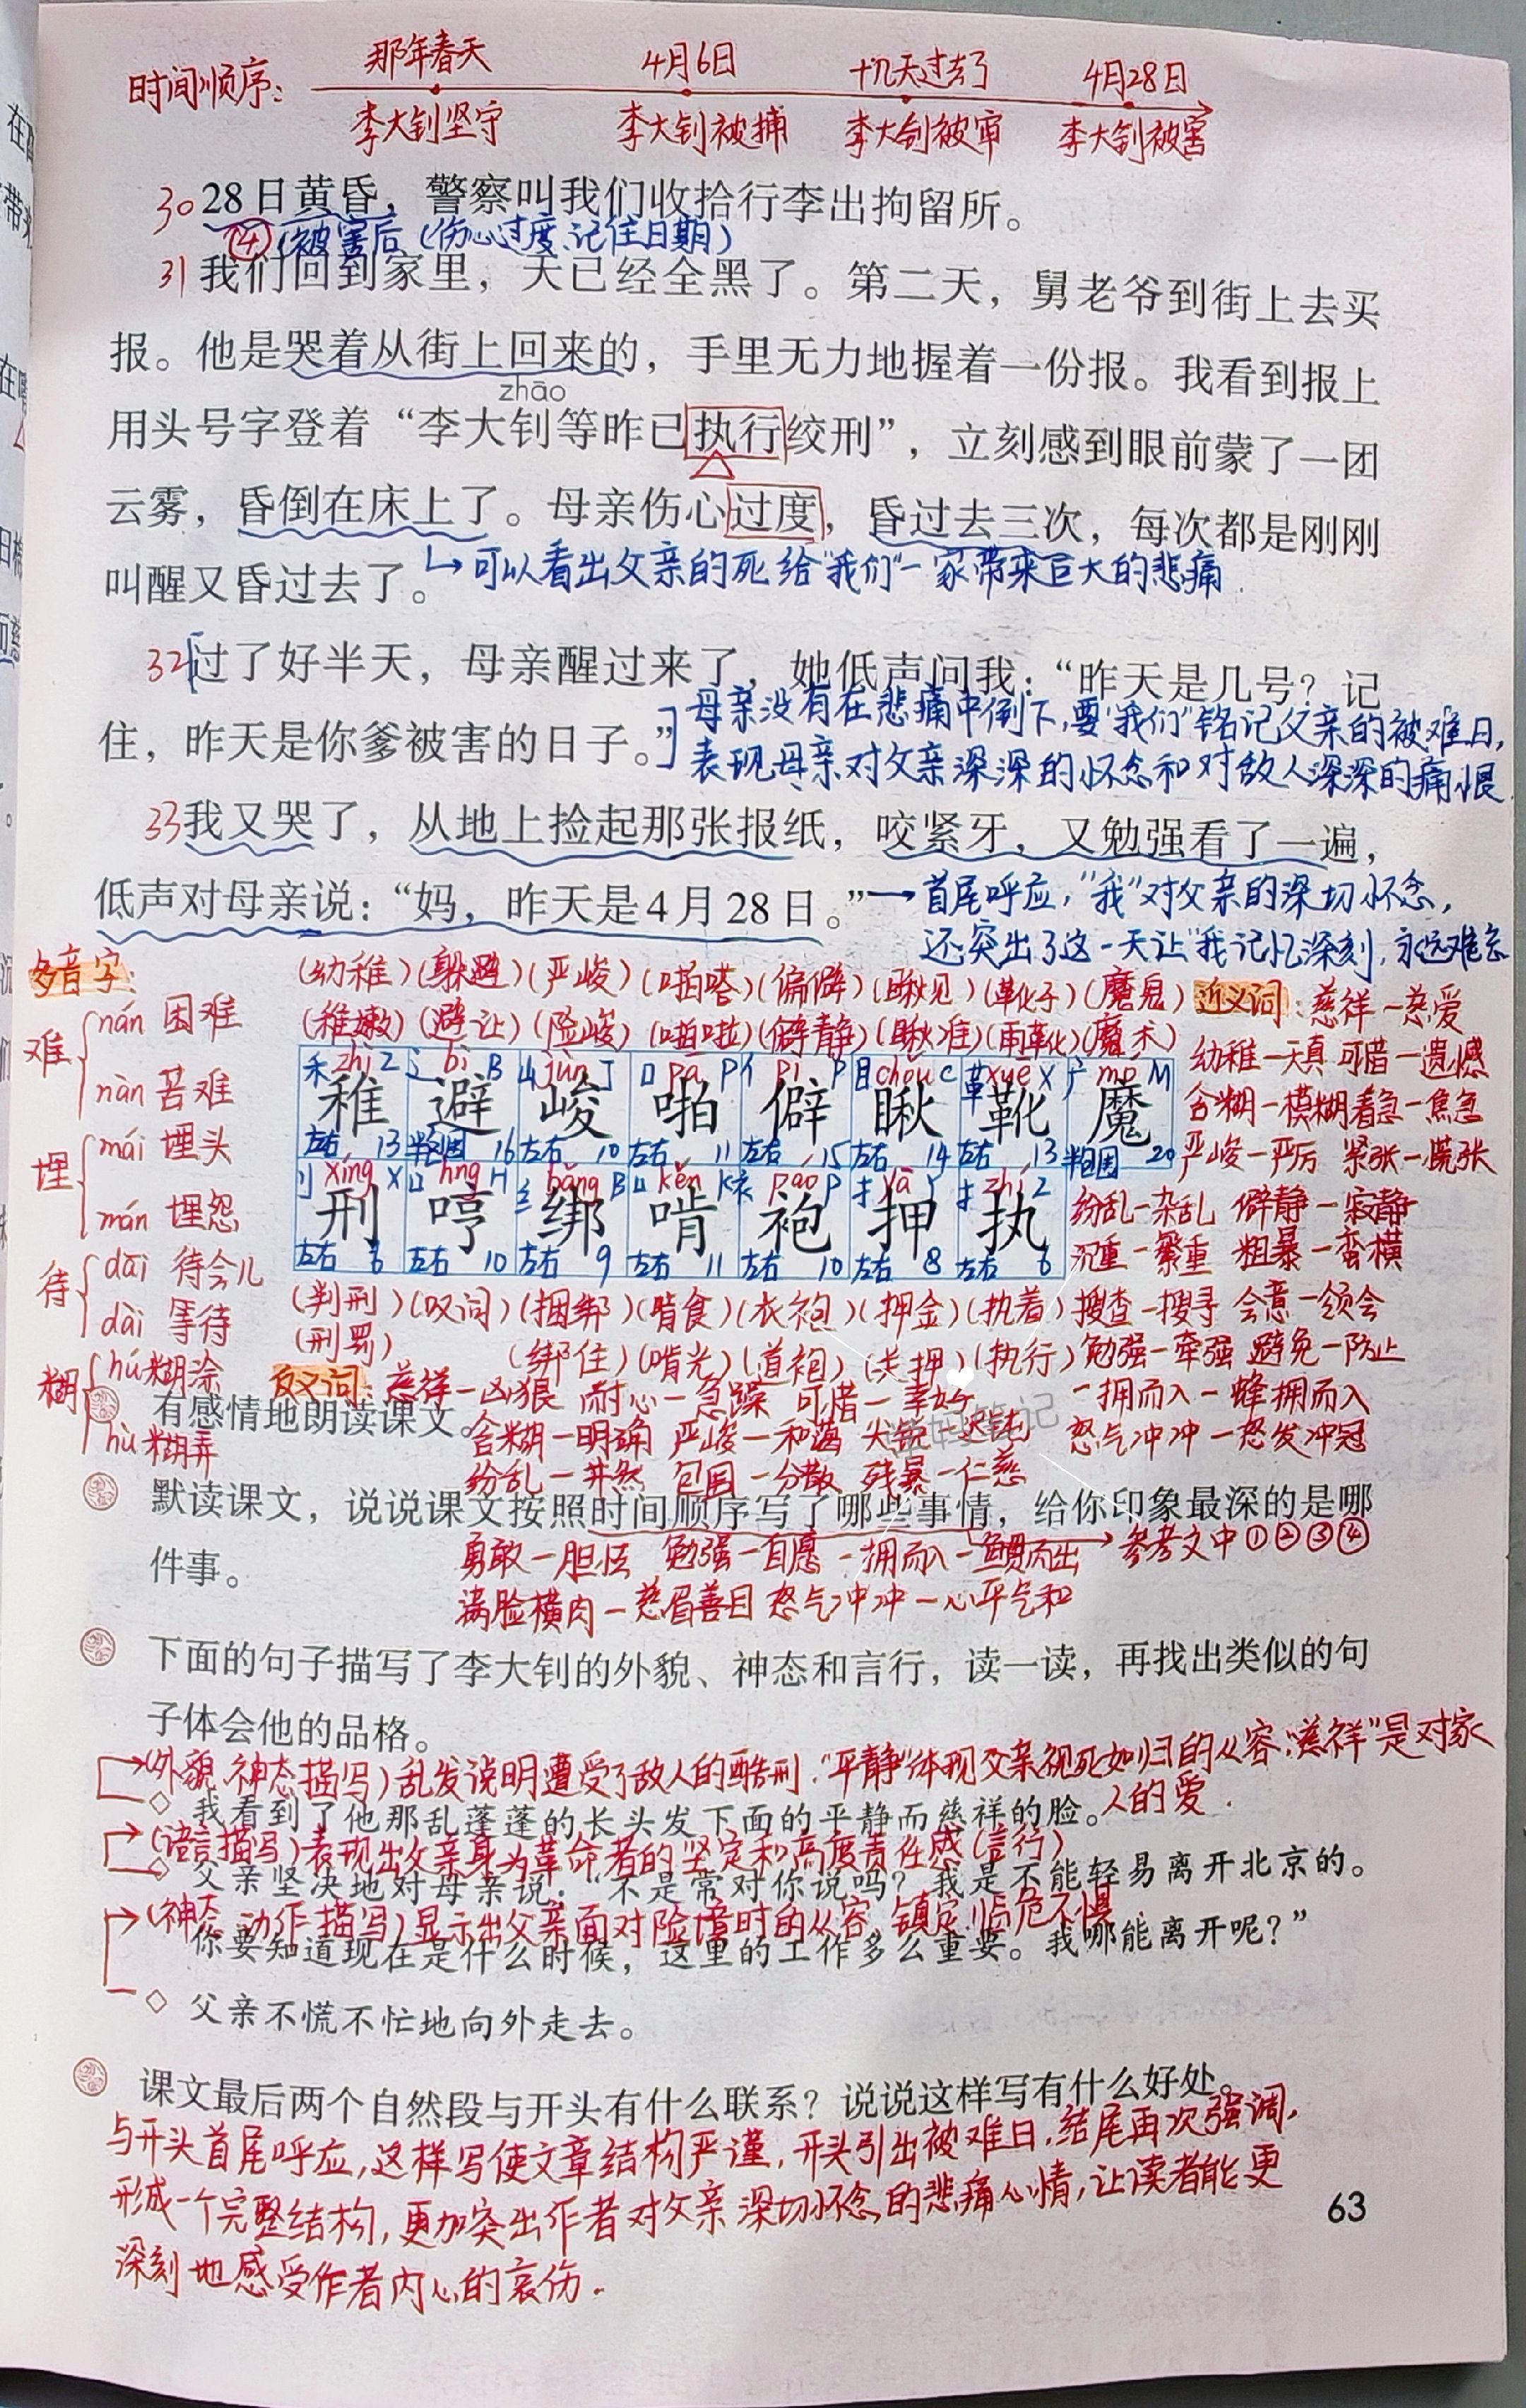 那年春天 4月6日 十几天过去了 4月28日
时间顺序:
李大钊坚守 李大钊被捕 李大钊被审 李大钊被害
30 28日黄昏，警察叫我们收拾行李出拘留所。
④(被害后(伤心过度、记住日期)
31 我们回到家里，天已经全黑了。第二天，舅老爷到街上去买
报。他是哭着从街上回来的，手里无力地握着一份报。我看到报上
zhāo
用头号字登着“李大钊等昨已执行绞刑”，立刻感到眼前蒙了一团
云雾，昏倒在床上了。母亲伤心过度，昏过去三次，每次都是刚刚
叫醒又昏过去了。
可以看出父亲的死给“我们”一家带来巨大的悲痛
32 过了好半天，母亲醒过来了，她低声问我：“昨天是几号？记
住，昨天是你爹被害的日子。”
母亲没有在悲痛中倒下,要“我们”铭记父亲的被难日,
表现母亲对父亲深深的怀念和对敌人深深的痛恨
33 我又哭了，从地上捡起那张报纸，咬紧牙，又勉强看了一遍，
低声对母亲说：“妈，昨天是4月28日。”
首尾呼应,“我”对父亲的深切怀念,
还突出了这一天让“我记忆深刻,永远难忘
多音字:
难 nán 困难
nàn 苦难
埋 mái 埋头
mán 埋怨
待 dāi 待会儿
dài 等待
糊 hú 糊涂
hù 糊弄
(幼稚)(躲避)(严峻)(啪嗒)(偏僻)(瞅见)(靴子)(魔鬼)
(稚嫩)(避让)(险峻)(啪啦)(僻静)(瞅准)(雨靴)(魔术)
稚 避 峻 啪 僻 瞅 靴 魔
左右 13 半包围 16 左右 10 左右 11 左右 15 左右 14 左右 13 半包围 20
刑 哼 绑 啃 袍 押 执
左右 6 左右 10 左右 9 左右 11 左右 10 左右 8 左右 6
(判刑)(叹问)(捆绑)(啃食)(衣袍)(押金)(执着)
(刑罚) (绑住)(啃光)(道袍)(关押)(执行)
近义词: 慈祥—慈爱
幼稚—天真 可惜—遗憾
含糊—模糊 着急—焦急
严峻—严厉 紧张—慌张
纷乱—杂乱 僻静—寂静
沉重—繁重 粗暴—蛮横
搜查—搜寻 会意—领会
勉强—牵强 避免—防止
一拥而入—蜂拥而入
怒气冲冲—怒发冲冠
反义词: 慈祥—凶狠 耐心—急躁 可惜—幸好
有感情地朗读课文。
含糊—明确 严峻—和蔼
纷乱—井然 包围—分散 残暴—仁慈
默读课文，说说课文按照时间顺序写了哪些事情，给你印象最深的是哪
件事。
参考文中①②③④
勇敢—胆怯 勉强—自愿 一拥而入—鱼贯而出
满脸横肉—慈眉善目 怒气冲冲—心平气和
下面的句子描写了李大钊的外貌、神态和言行，读一读，再找出类似的句
子体会他的品格。
(外貌、神态描写)乱发说明遭受了敌人的酷刑.“平静”体现父亲视死如归的从容.“慈祥”是对家
人的爱.
◇ 我看到了他那乱蓬蓬的长头发下面的平静而慈祥的脸。
(语言描写)表现出父亲身为革命者的坚定和高度责任感(言行)
◇ 父亲坚决地对母亲说：“不是常对你说吗？我是不能轻易离开北京的。
(神态、动作描写)显示出父亲面对险境时的从容、镇定,临危不惧
你要知道现在是什么时候，这里的工作多么重要。我哪能离开呢？”
◇ 父亲不慌不忙地向外走去。
课文最后两个自然段与开头有什么联系？说说这样写有什么好处。
与开头首尾呼应,这样写使文章结构严谨,开头引出被难日,结尾再次强调,
形成一个完整结构,更加突出作者对父亲深切怀念的悲痛心情,让读者能更
深刻地感受作者内心的哀伤.
63